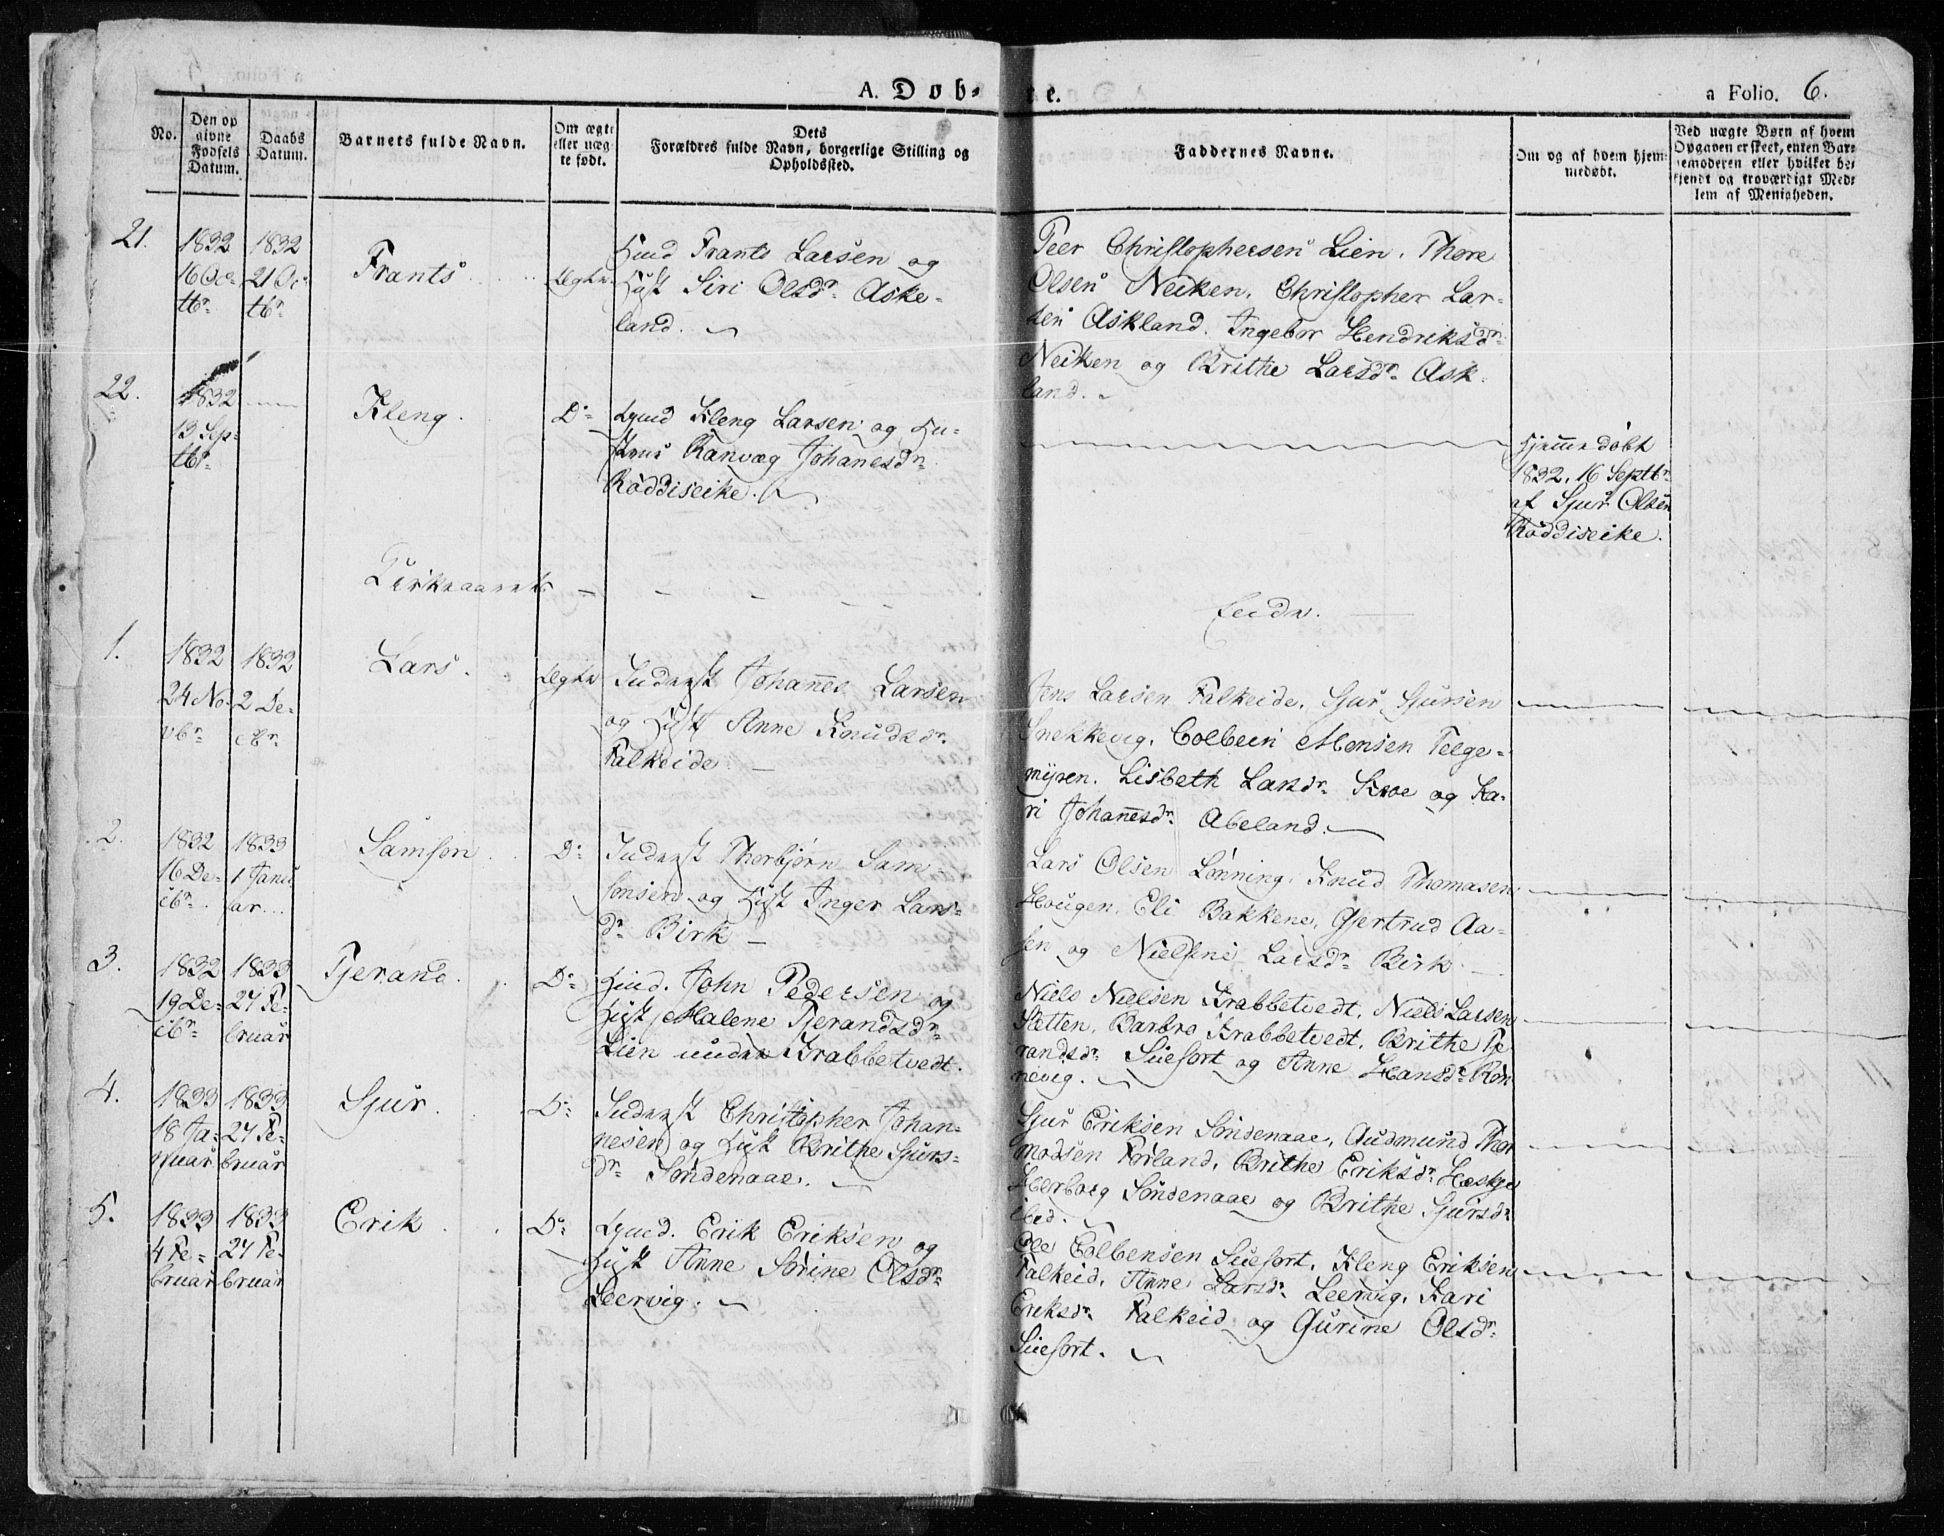 A. Døb- te.
a Folio. 6.
No.
Den opgivne Fødsels Datum.
Daabs Datum.
Barnets fulde Navn.
Om ægte eller uægte født.
Dets Forældres fulde Navn, borgerlige Stilling og Opholdssted.
Faddernes Navne.
Om og af hvem hjemmedøbt.
Ved uægte Børn af hvem Opgaven er skeet, enten Barnemoderen eller hvilket bekjendt og troværdigt Medlem af Menigheden.
21.
1832
16 Oc-
tbr
1832
21 Oc-
tbr
Frants
Ægte
Huusmd Frants Larsen og
Hust Siri Olsdr Aske-
land.
Peer Christophersen Lien, Thore
Olsen Neiken, Christopher Lar-
sen Askland, Ingebor Hendriksdr
Neiken og Brithe Larsdr Ask-
land.
22.
1832
13 Sep-
tbr
Kleng.
Do
Gmd Kleng Larsen og Hu-
struе Ranvæg Johanesdr
Røddiseike.
Hjemmedøbt
1832, 16 Septbr
af Sjur Olsen
Røddiseike.
Kirkeaarets
Ende.
1.
1832
24 No-
vbr
1832
2 De-
cbr
Lars.
Ægte
Inderst Johannes Larsen
og Hust Anne Knudsdr
Falkeide
Jens Larsen Falkeide, Sjur Sjursen
Snekkevig, Colbein Monsen Felge-
myren, Lisbeth Larsdr Kroe og Ka-
ri Johannesdr Abeland.
2.
1832
16 De-
cbr
1833
1 Janu
ar
Samson
Do
Inderst Thorbjørn Sam-
sonsen og Hust Inger Lars-
dr Birk
Lars Olsen Lønning, Knud Thomasen
Hougen, Eli Bakkene, Gjertrud Aa-
sen og Nielsine Larsdr Birk.
3.
1832
19 De-
cbr
1833
24 Fe-
bruar
Tjerand.
Do
Huusmd. John Pedersen og
Hust Malene Tjerandsdr
Lien under Krabbetvedt.
Niels Nielsen Krabbetvedt, Niels Larsen
Sætten, Barbro Krabbetvedt, Brithe Tje-
randsdr Suefort og Anne Hansdr Røn
nevig.
4.
1833
18 Ja-
nuar
1833
24 Fe-
bruar
Sjur
Do
Inderst Christopher Johan-
nesen og Hust Brithe Sjurs-
dr Søndenaae.
Sjur Eriksen Søndenaae, Audmund Thor
modsen Førland, Brithe Eriksdr Heskje
Herborg Søndenaae og Brithe Sjursdr
ibid.
5.
1833
4 Fe-
bruar
1833
24 Fe-
bruar
Erik
Do
Gmd. Erik Eriksen og
Hust Anne Sørine Olsdr
Leervig.
Ole Colbensen Suefort, Kleng Eriksen
Falkeid, Anne Larsdr Leervig, Kari
Eriksdr Falkeid og Gurine Olsdr
Suefort.